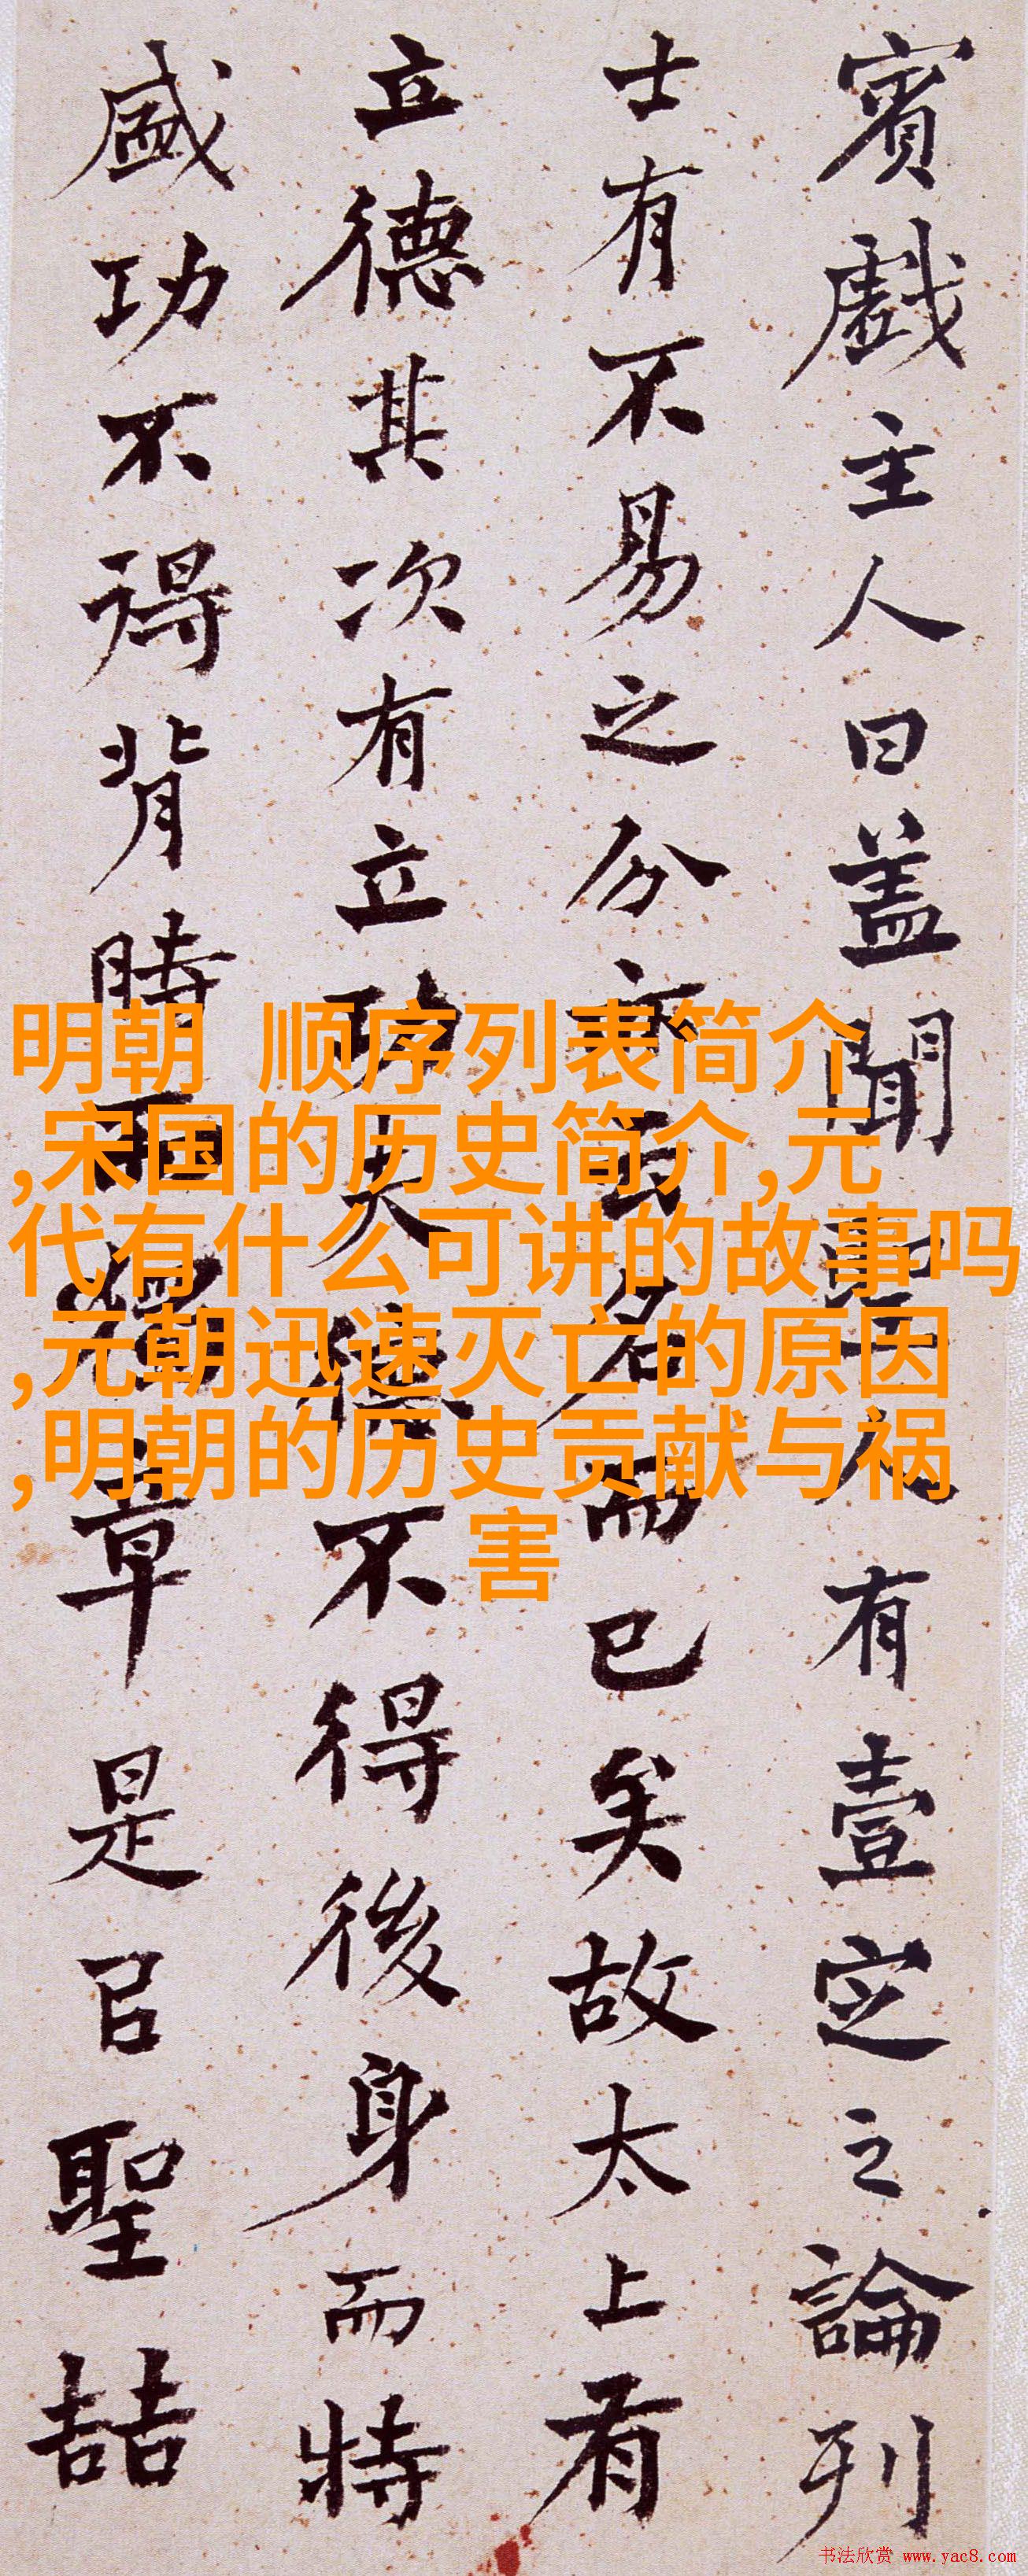 賓戲主人曰盖聞聖人有壹定之論列
士有不易之分亦云名而已矣故太上有
立德其次有立功夫德不得後身而特
盛功不得背時而獨章是㠯聖喆
明朝 顺序列表简介
,宋国的历史简介,元
代有什么可讲的故事吗
,元朝迅速灭亡的原因
,明朝的历史贡献与祸
害
书法欣赏 www.yac8.com